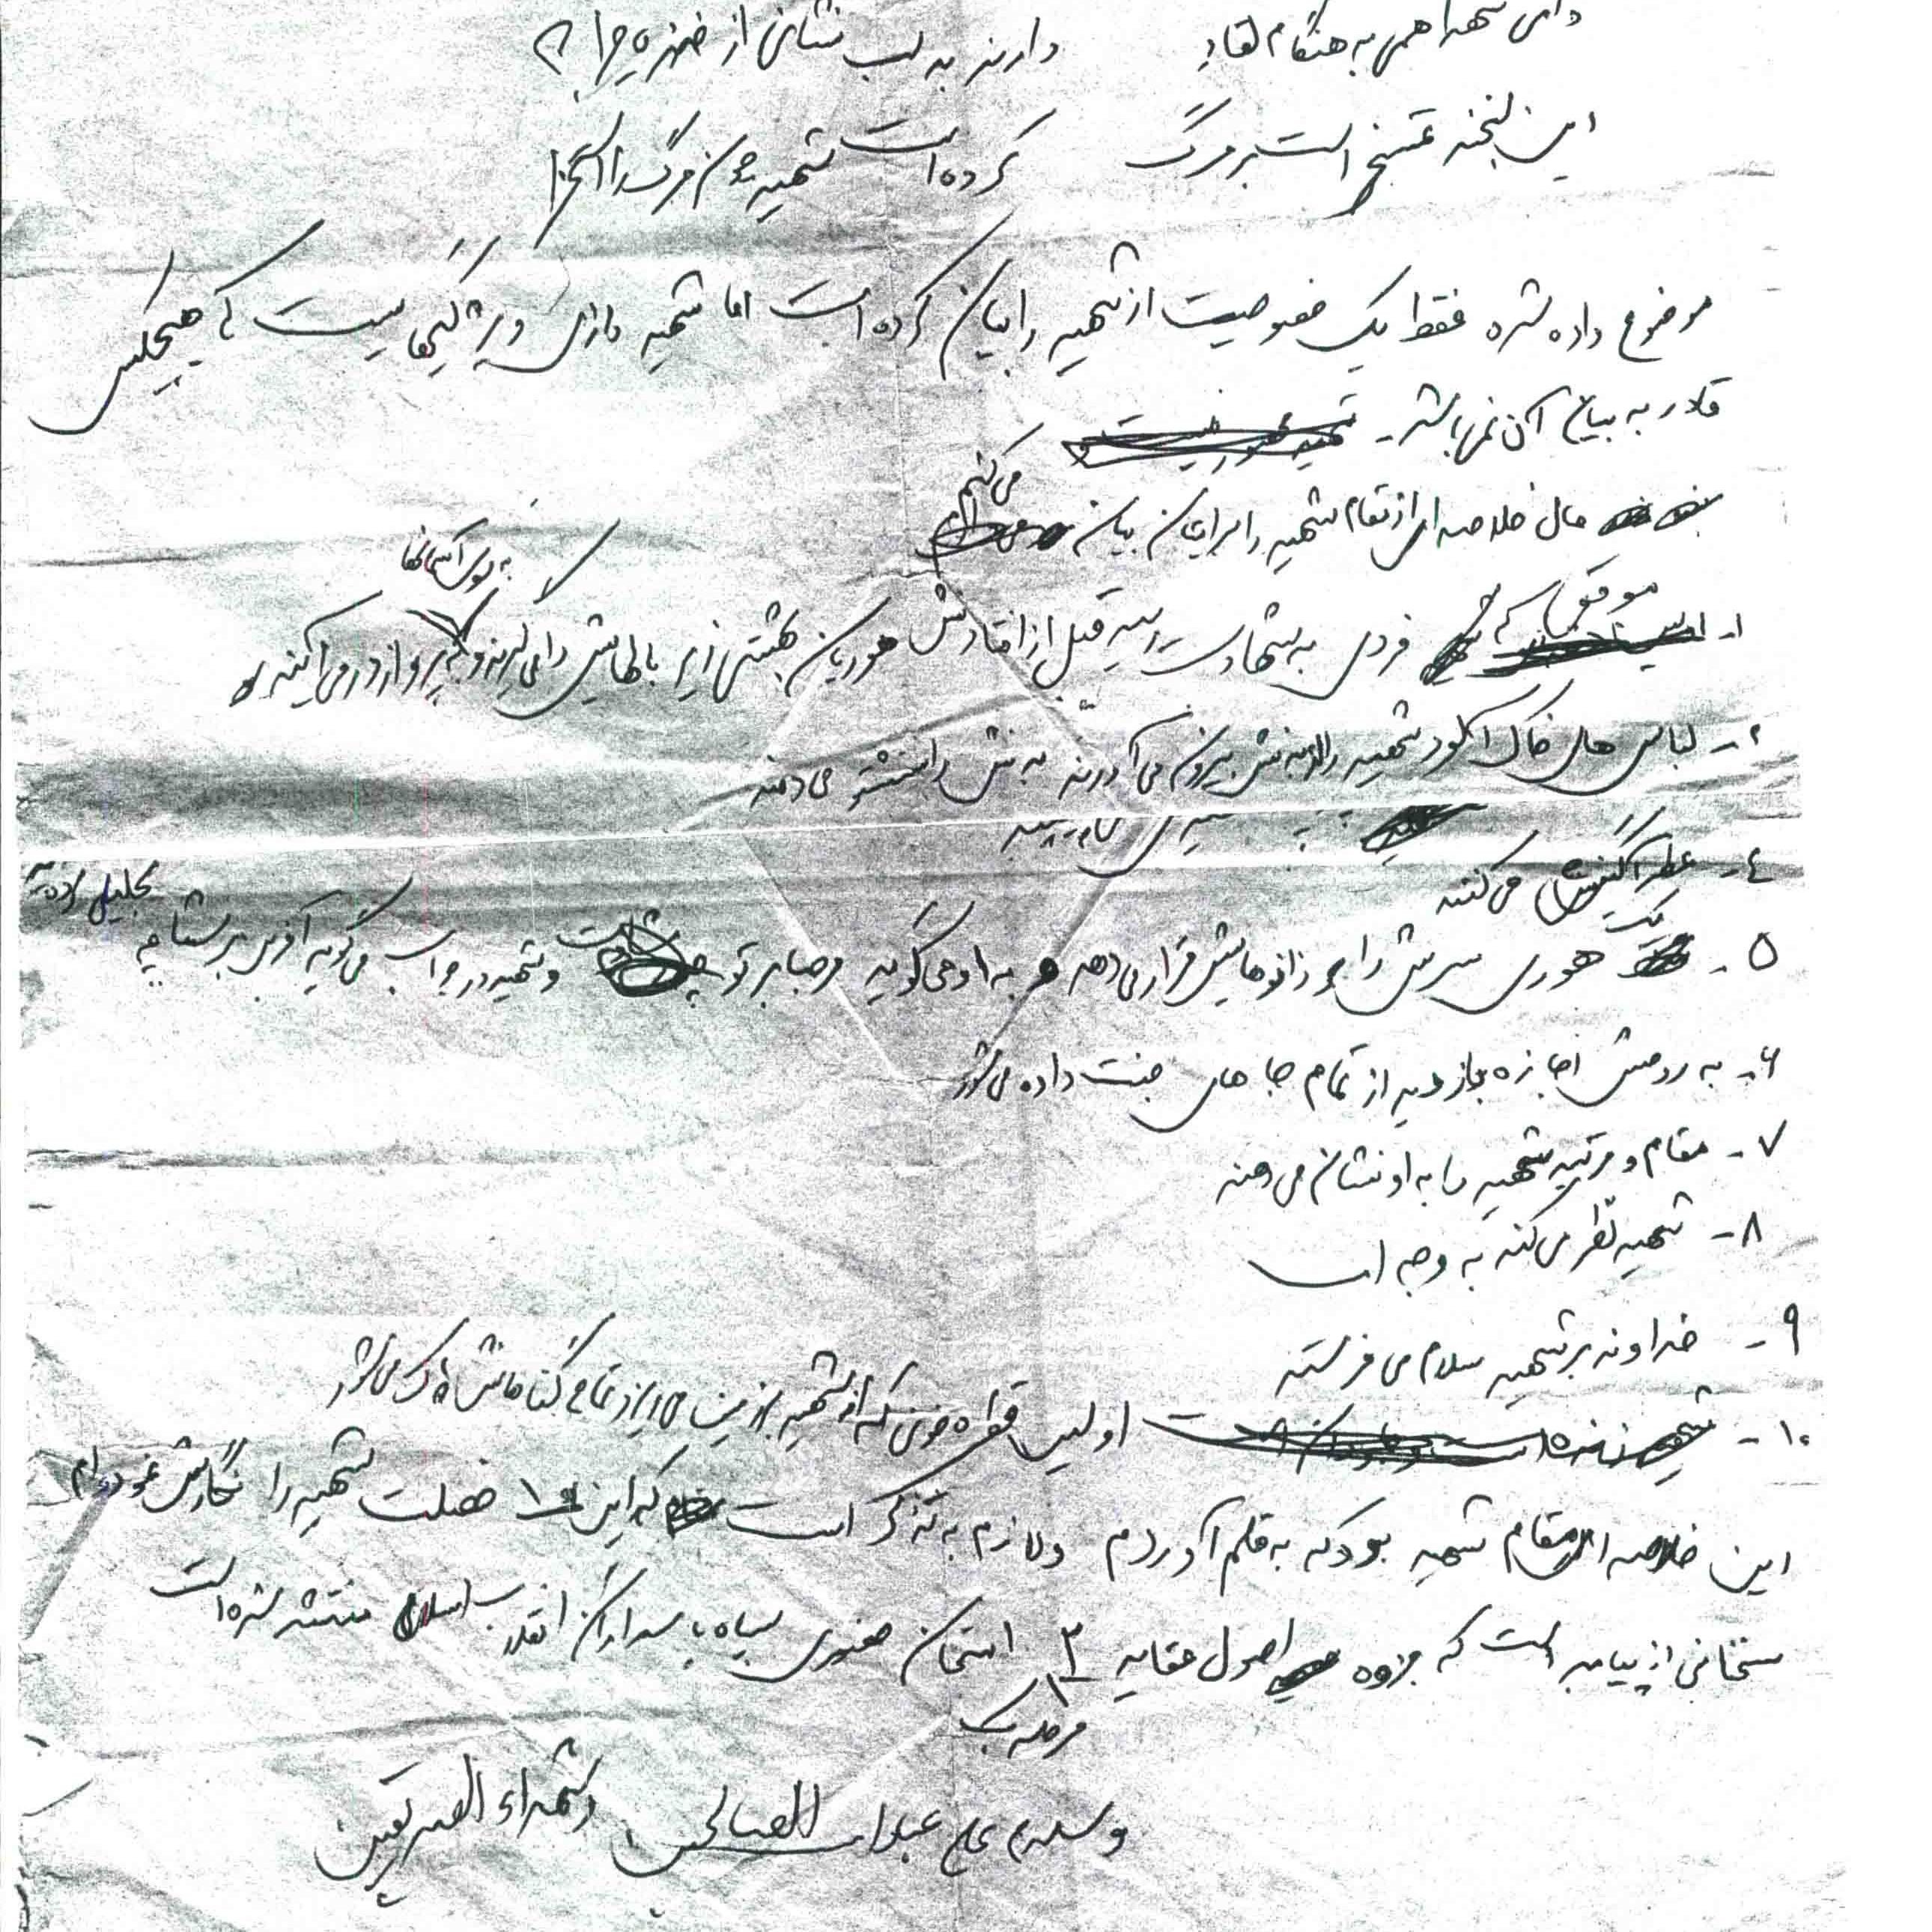 دانی شهدا همی به هنگام لقاء دارند به لب نشانی از خنده چرا؟
این لبخند تمسخر است بر مرگ کرده است شهید چون مرگ را
موضوع داده شده فقط یک خصوصیت از شهید را بیان کرده است اما شهید دارای ویژگیهاییست که هیچکس
قادر به بیان آن نمی باشد -
حال خلاصه ای از مقام شهید را برایتان بیان می کنم
۱- موقعی که فردی به شهادت رسید قبل از افتادنش حوریان بهشتی زیر بالهایش را می گیرند و به پرواز در می آیند
به سوی آسمانها
۲- لباس های خاک آلود شهید را از بدنش بیرون می آورند بدنش را شستشو می دهند
٤- عطرآگینش می کنند
۵- یک هوری سرش را بر زانوهایش قرار می دهد به او می گوید مرحبا بر تو و شهید در جواب می گوید آفرین بر شما چه تجلیل
۶- به روحش اجازه بازدید از تمام جا های جنت داده می شود
۷- مقام و مرتبه شهید را به او نشان می دهند
۸- شهید نظر می کند به وجه الله
۹- خداوند بر شهید سلام می فرستد
۱۰- اولین قطره خونی که از شهید بر زمین می ریزد تمامی گناهانش پاک می شود
این خلاصه ای از مقام شهید بود که به قلم آوردم ولازم به تذکر است که این ۱۰ خصلت شهید را نگارش نموده ام
سخنانی از پیامبر است که جزوه اصول عقاید ۲ امتحان حضوری سپاه پاسداران انقلاب اسلامی منتشر شده است
وسلام علی عبادالله الصالحین وشهداء الصدیقین